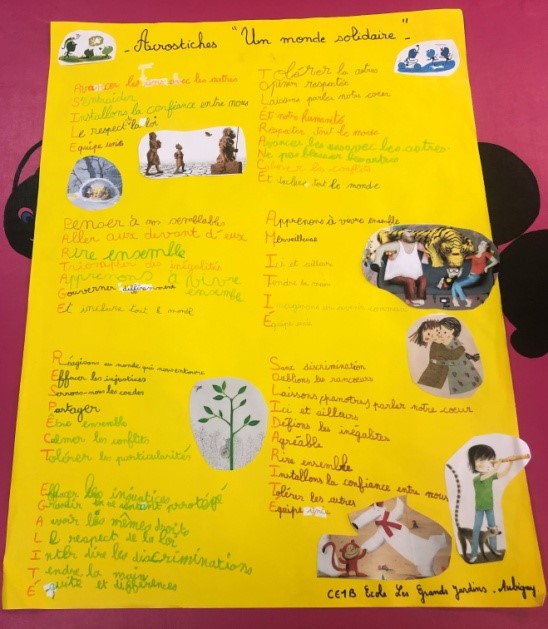 - Acrostiches "Un monde solidaire" -
Avancer les uns avec les autres
S'entraider
Installons la confiance entre nous
Le respect la loi
Equipe unie
Tolérer les autres
Opinion respectée
Laissons parler notre coeur
Et notre humanité
Respecter tout le monde
Avancer les uns avec les autres
Ne pas blesser les autres
Calmer les conflits
Et inclure tout le monde
Penser à nos semblables
Aller aux devant d'eux
Rire ensemble
Triompher des inégalités
Apprenons à vivre ensemble
Gouverner différemment
Et inclure tout le monde
Apprenons à vivre ensemble
Merveilleuse
Ici et ailleurs
Tendre la main
Equipe unie
Réagissons au monde qui nous entoure
Effacer les injustices
Serrons-nous les coudes
Partager
Être ensemble
Calmer les conflits
Tolérer les particularités
Sans discrimination
Oublions les rancoeurs
Laissons parler notre coeur
Ici et ailleurs
Défions les inégalités
Agréable
Rire ensemble
Installons la confiance entre nous
Tolérer les autres
Equipe unie
Effacer les injustices
Grandir en se sentant protégé
Avoir les mêmes droits
Le respect de la loi
Interdire les discriminations
Tendre la main
Équité et différences
CE1B Ecole Les Grands Jardins - Aubigny